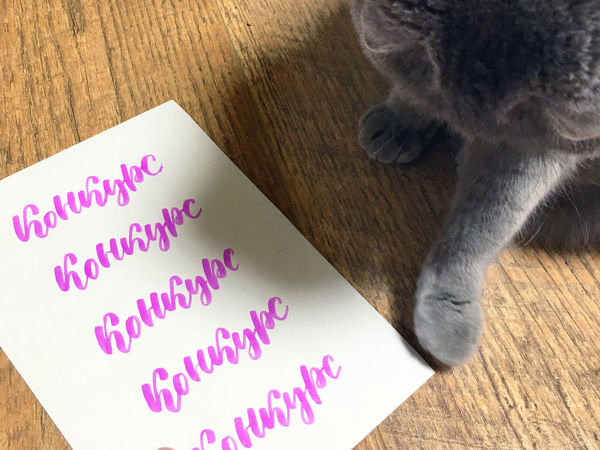 конкурс
конкурс
конкурс
конкурс
конкурс